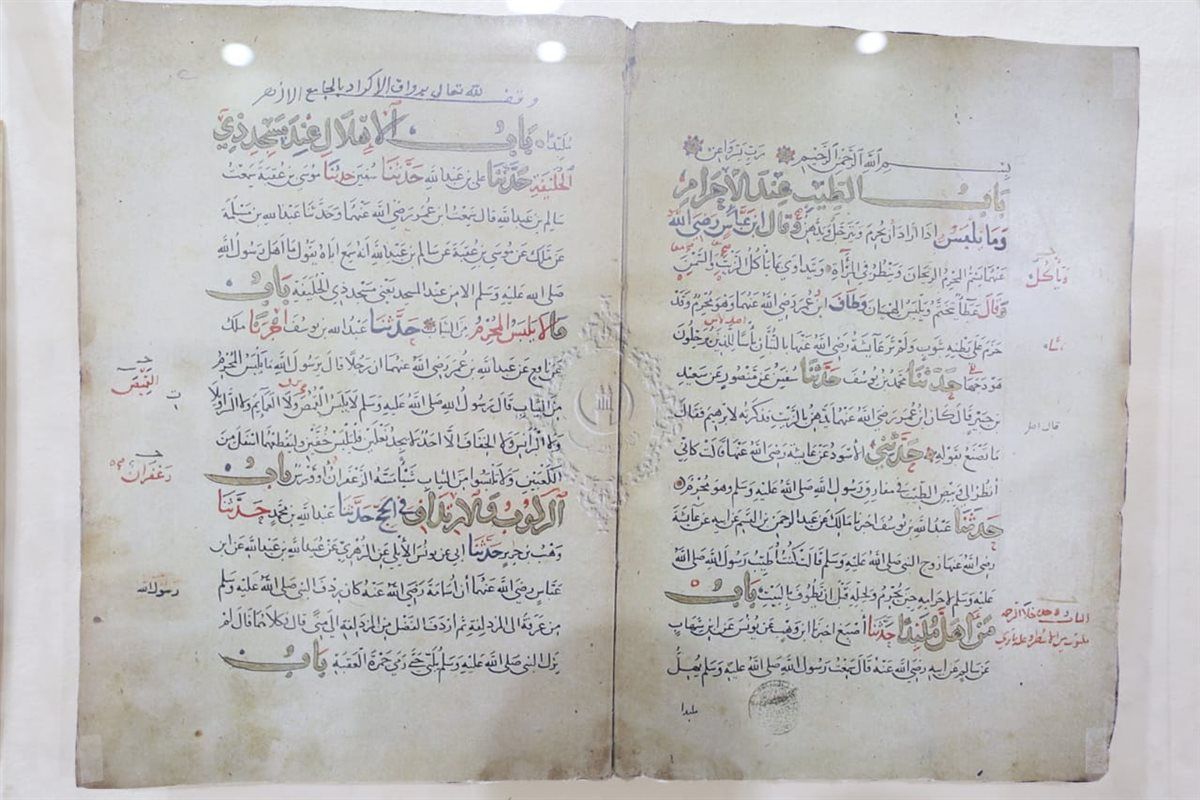 بسم الله الرحمن الرحيم رب يسر واعن
باب الطيب عند الاحرام
وما يلبس اذا اراد ان يحرم ويترجل ويدهن وقال ابن عباس رضي الله
عنهما يشم المحرم الريحان وينظر في المرآة ويتداوى بما ياكل الزيت والسمن
وقال عطاء يتختم ويلبس الهميان وطاف ابن عمر رضي الله عنهما وهو محرم وقد
حزم على بطنه بثوب ولم تر عائشة رضي الله عنها بالتبان باسا للذين يرحلون
هودجها حدثنا محمد بن يوسف حدثنا سفين عن منصور عن سعيد
بن جبير قال كان ابن عمر رضي الله عنهما يدهن بالزيت فذكرته لابرهيم فقال
ما تصنع بقوله حدثني الاسود عن عائشة رضي الله عنها قالت كاني
انظر الى وبيص الطيب في مفارق رسول الله صلى الله عليه وسلم وهو محرم
حدثنا عبد الله بن يوسف اخبرنا مالك عن عبد الرحمن بن القسم عن ابيه عن عائشة
رضي الله عنها زوج النبي صلى الله عليه وسلم قالت كنت اطيب رسول الله صلى الله
عليه وسلم لاحرامه حين يحرم ولحله قبل ان يطوف بالبيت باب
من اهل ملبدا حدثنا اصبغ اخبرنا ابن وهب عن يونس عن ابن شهاب
عن سالم عن ابيه رضي الله عنه قال سمعت رسول الله صلى الله عليه وسلم يهل
ملبدا
وياكل
وقف لله تعالى برواق الاكراد بالجامع الازهر
ملبدا باب الاهلال عند مسجد ذي
الحليفة حدثنا علي بن عبد الله حدثنا سفين حدثنا موسى بن عقبة سمعت
سالم بن عبد الله قال سمعت ابن عمر رضي الله عنهما وحدثنا عبد الله بن مسلمة
عن مالك عن موسى بن عقبة عن سالم بن عبد الله انه سمع اباه يقول ما اهل رسول الله
صلى الله عليه وسلم الا من عند المسجد يعني مسجد ذي الحليفة باب
ما لا يلبس المحرم من الثياب حدثنا عبد الله بن يوسف اخبرنا ملك
عن نافع عن عبد الله بن عمر رضي الله عنهما ان رجلا قال يرسول الله ما يلبس المحرم
من الثياب قال رسول الله صلى الله عليه وسلم لا يلبس القمص ولا العمايم ولا السراويلات
ولا البرانس ولا الخفاف الا احد لا يجد نعلين فليلبس خفين وليقطعهما اسفل من
الكعبين ولا تلبسوا من الثياب شيا مسه الزعفران او ورس باب
الركوب والارتداف في الحج حدثنا عبد الله بن محمد حدثنا
وهب بن جرير حدثنا ابي عن يونس الايلي عن الزهري عن عبيد الله بن عبد الله عن ابن
عباس رضي الله عنهما ان اسامة رضي الله عنه كان ردف النبي صلى الله عليه وسلم
من عرفة الى المزدلفة ثم اردف الفضل من المزدلفة الى منى قال فكلاهما قال لم
يزل النبي صلى الله عليه وسلم يلبي حتى رمى جمرة العقبة باب
القميص
زعفران
رسول الله